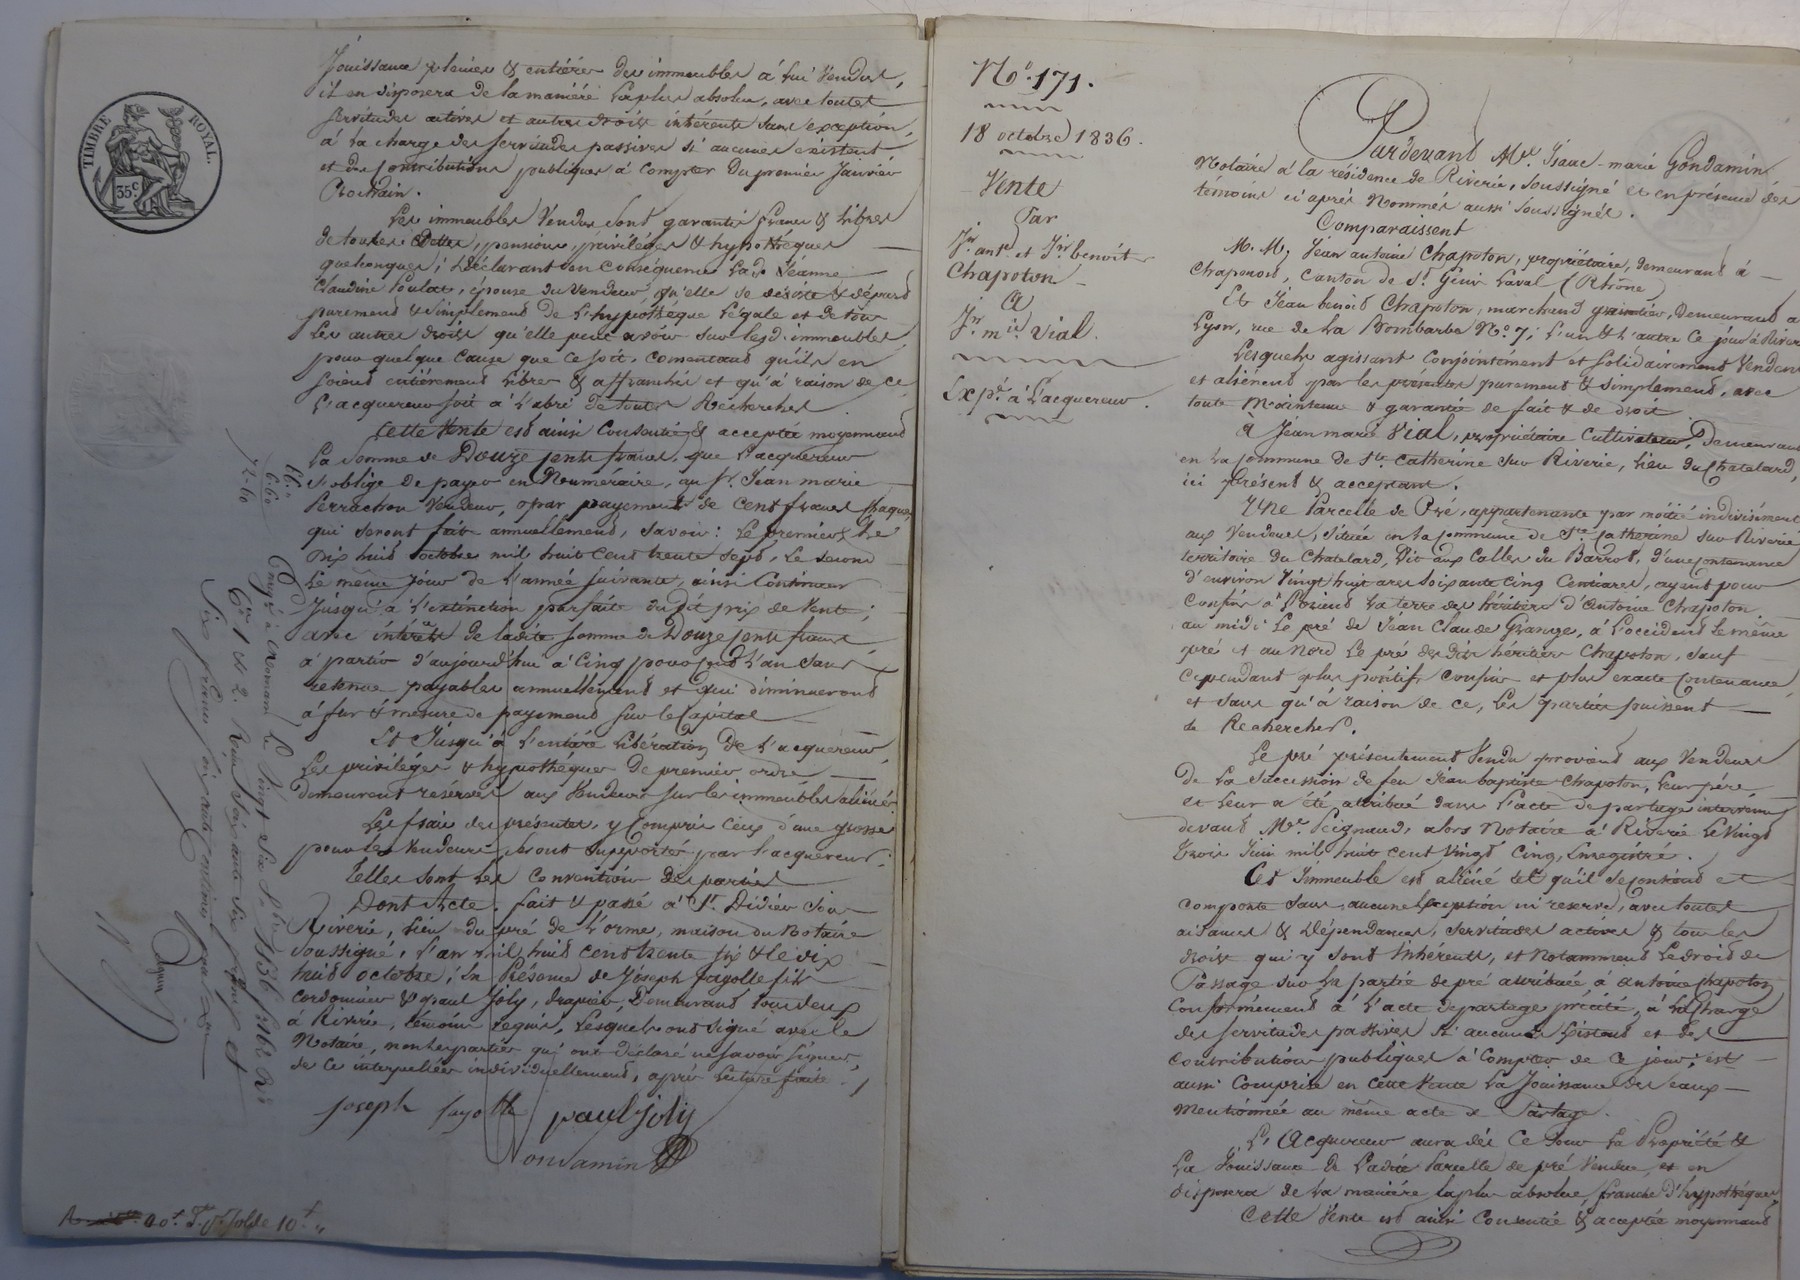 TIMBRE ROYAL.
35 c
Jouissance pleine & entière des immeubles à lui vendus,
il en disposera de la manière la plus absolue, avec toutes
servitudes actives et autres droits inhérents sans exception,
à la charge des servitudes passives si aucunes existent
et des contributions publiques à compter du premier Janvier
Prochain.
Les immeubles vendus sont garantis francs & libres
de toutes dettes, pensions, privilèges & hypothèques
quelconques; déclarant en conséquence lad. Jeanne
Claudine Poulat, épouse du vendeur, qu'elle se désiste & départ
purement & simplement de l'hypothèque légale et de tous
les autres droits qu'elle peut avoir sur lesd. immeubles
pour quelque cause que ce soit, consentant qu'ils en
soient entièrement libres & affranchis et qu'à raison de ce
l'acquereur soit à l'abri de toutes Recherches
Cette Vente est ainsi consentie & acceptée moyennant
la somme de Douze cents francs, que l'acquereur
s'oblige de payer en Numéraire, au Sr. Jean marie
Perrachon Vendeur, par payements de cent francs chaque,
qui seront faits annuellement, savoir: le premier le
dix huit octobre mil huit cent trente sept, le second
le même jour de l'année suivante, ainsi continuer
jusqu'à l'extinction parfaite dudit prix de vente;
avec intérêts de ladite somme de Douze cents francs
à partir d'aujourd'hui à cinq pour cent l'an sans
retenue payables annuellement et qui diminueront
à fur & mesure de payement sur le Capital
Et Jusqu'à l'entière libération de l'acquereur,
les privilèges & hypothèques de premier ordre
demeurent réservés aux Vendeurs sur les immeubles aliénés
Les frais des présentes, y compris ceux d'une grosse
pour les Vendeurs seront supportés par l'acquereur.
Telles sont les conventions des parties
Dont Acte, fait & passé à St. Didier sous
Riverie, lieu du pré de l'orme, maison du Notaire
soussigné, l'an mil huit cent trente six & le dix
huit octobre; en Présence de Joseph fayolle fils
cordonnier & paul Joly, drapier, demeurant tous deux
à Riverie, témoins requis, lesquels ont signé avec le
Notaire, non les parties qui ont déclaré ne savoir signer,
de ce interpellées individuellement, après lecture faite.
joseph fayolle paul joly
Gondamin
16."
6.60
72.60
Enregé à mornant le vingt six 8bre 1836 fo. 162 Ro.
Cs 1 & 2. Reçu soixante six francs et
six francs soixante centimes pour 10e
No. 171.
18 octobre 1836.
Vente
Par
Jn. ant. et Jn. benoît
Chapoton
A
Jn. mie vial.
Expé. à l'acquereur.
Pardevant Me. Isaac-marie Gondamin
Notaire à la résidence de Riverie, soussigné et en présence des
témoins ci après Nommés aussi soussignés.
Comparaissent
M. M. Jean antoine Chapoton, propriétaire, demeurant à
Chaponost, canton de St. Genis Laval (Rhône)
Et Jean benoit Chapoton, marchand, demeurant à
Lyon, rue de la Bombarde No. 7; l'un & l'autre ce jour à Riverie
Lesquels agissant conjointement et solidairement vendent
et aliénent par les présentes purement & simplement, avec
toute Maintenue & garantie de fait & de droit
A Jean marie Vial, propriétaire cultivateur, Demeurant
en la commune de Ste. Catherine sur Riverie, lieu du Chatelard,
ici présent & acceptant.
Une Parcelle de Pré, appartenante par moitié indivisément
aux Vendeurs, située en la commune de Ste. Catherine sur Riverie
territoire du Chatelard, dit aux Calles du Barrot, d'une contenance
d'environ Vingt huit ares soixante cinq Centiares, ayant pour
confins à l'orient la terre des héritiers d'Antoine Chapoton
au midi le pré de Jean Claude Grange, à l'occident le même
pré et au Nord le pré desdits héritiers Chapoton, sauf
cependant plus positifs confins et plus exacte contenance
et sans qu'à raison de ce, les parties puissent
se Rechercher.
Le pré présentement vendu provient aux Vendeurs
de la Succession de feu Jean baptiste Chapoton, leur père
et leur a été attribué dans l'acte de partage intervenu
devant Me. Peignaud, alors Notaire à Riverie le vingt
trois Juin mil huit cent vingt cinq, Enregistré.
Cet Immeuble est aliéné tel qu'il se contient et
comporte sans aucune exception ni reserve, avec toutes
aisances & dépendances, servitudes actives & tous les
droits qui y sont inhérents, et Notamment le droit de
Passage sur la partie de pré attribuée à antoine chapoton
conformément à l'acte de partage précité, à la charge
des servitudes passives si aucunes Existent et des
contributions publiques à compter de ce jour; est
aussi comprise en cette Vente la Jouissance des eaux
mentionnée au même acte de Partage.
L'Acquereur aura dès ce Jour la Propriété &
la Jouissance de ladite Parcelle de pré vendue, et en
disposera de la manière la plus absolue, franche d'hypothèques
Cette Vente est ainsi consentie & acceptée moyennant